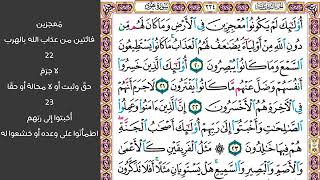 ٢٢٤
أُوْلَٰٓئِكَ لَمْ يَكُونُوا۟ مُعْجِزِينَ فِى ٱلْأَرْضِ وَمَا كَانَ لَهُم مِّن
دُونِ ٱللَّهِ مِنْ أَوْلِيَآءَ يُضَٰعَفُ لَهُمُ ٱلْعَذَابُ مَا كَانُوا۟ يَسْتَطِيعُونَ
ٱلسَّمْعَ وَمَا كَانُوا۟ يُبْصِرُونَ ٢٠ أُوْلَٰٓئِكَ ٱلَّذِينَ خَسِرُوٓا۟
أَنفُسَهُمْ وَضَلَّ عَنْهُم مَّا كَانُوا۟ يَفْتَرُونَ ٢١ لَا جَرَمَ أَنَّهُمْ
فِى ٱلْءَاخِرَةِ هُمُ ٱلْأَخْسَرُونَ ٢٢ إِنَّ ٱلَّذِينَ ءَامَنُوا۟ وَعَمِلُوا۟
ٱلصَّٰلِحَٰتِ وَأَخْبَتُوٓا۟ إِلَىٰ رَبِّهِمْ أُوْلَٰٓئِكَ أَصْحَٰبُ ٱلْجَنَّةِ
هُمْ فِيهَا خَٰلِدُونَ ٢٣ مَثَلُ ٱلْفَرِيقَيْنِ كَٱلْأَعْمَىٰ
وَٱلْأَصَمِّ وَٱلْبَصِيرِ وَٱلسَّمِيعِ هَلْ يَسْتَوِيَانِ مَثَلًا أَفَلَا تَذَكَّرُونَ
مُعجزين
فائتين من عذاب الله بالهرب
22
لا جرَمَ
حقّ وثبت أو لا محالة أو حقّا
23
أخبَتوا إلى ربّهم
اطمأنّوا على وعده أو خشعوا له